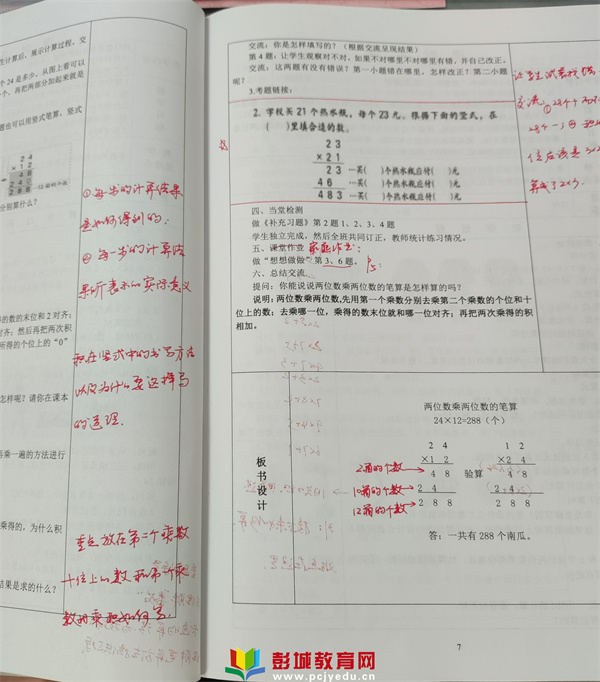 生计算后,展示计算过程。交
个 24 是多少。从图上看可以
个、再把两部分加起来就是
题也可以用竖式笔算。竖式
2 4
× 1 2
分别算什么?
①每步的计算结果
是如何得到的;
②每一步的计算结
果所表示的实际意义
得的数的末位和 2 对齐;
对齐;然后再把两次积
所得的个位上的“0”
积在竖式中的书写方法
以及为什么要这样写
的道理.
怎样呢?请你在课本
再乘一遍的方法进行
乘得的,为什么积
结果是求的什么?
重点放在第二个乘数
十位上的数和第一个乘
数的乘积如何写.
交流:你是怎样填写的?(根据交流呈现结果)
第 4 题:让学生观察对不对,如果不对哪里不对哪里有错,并自己改正。
交流:这两题有没有错误?第一小题错在哪里,怎样改正?第二小题
呢?
3.考题链接:
2. 学校买 21 个热水瓶,每个 23 元。根据下面的竖式,在
( )里填合适的数。
2 3
× 2 1
2 3 …买( )个热水瓶应付( )元
4 6 …买( )个热水瓶应付( )元
4 8 3 …买( )个热水瓶应付( )元
四、当堂检测
做《补充习题》第 2 题 1、2、3、4 题
学生独立完成,然后全班共同订正,教师统计练习情况。
五、课堂作业 家庭作业:
做“想想做做”第 3、6 题。
六、总结交流
提问:你能说说两位数乘两位数的笔算是怎样算的吗?
说明:两位数乘两位数,先用第一个乘数分别去乘第二个乘数的个位和十
位上的数;去乘哪一位,乘得的数末位就和哪一位对齐;再把两次乘得的积
相加。
交流:
板书设计
两位数乘两位数的笔算
24×12=288(个)
2 4
× 1 2
2箱的个数 4 8
10箱的个数 2 4
12箱的个数 2 8 8
验算
1 2
× 2 4
4 8
2 4
2 8 8
答:一共有 288 个南瓜。
7
彭城教育网
www.pcjyedu.cn